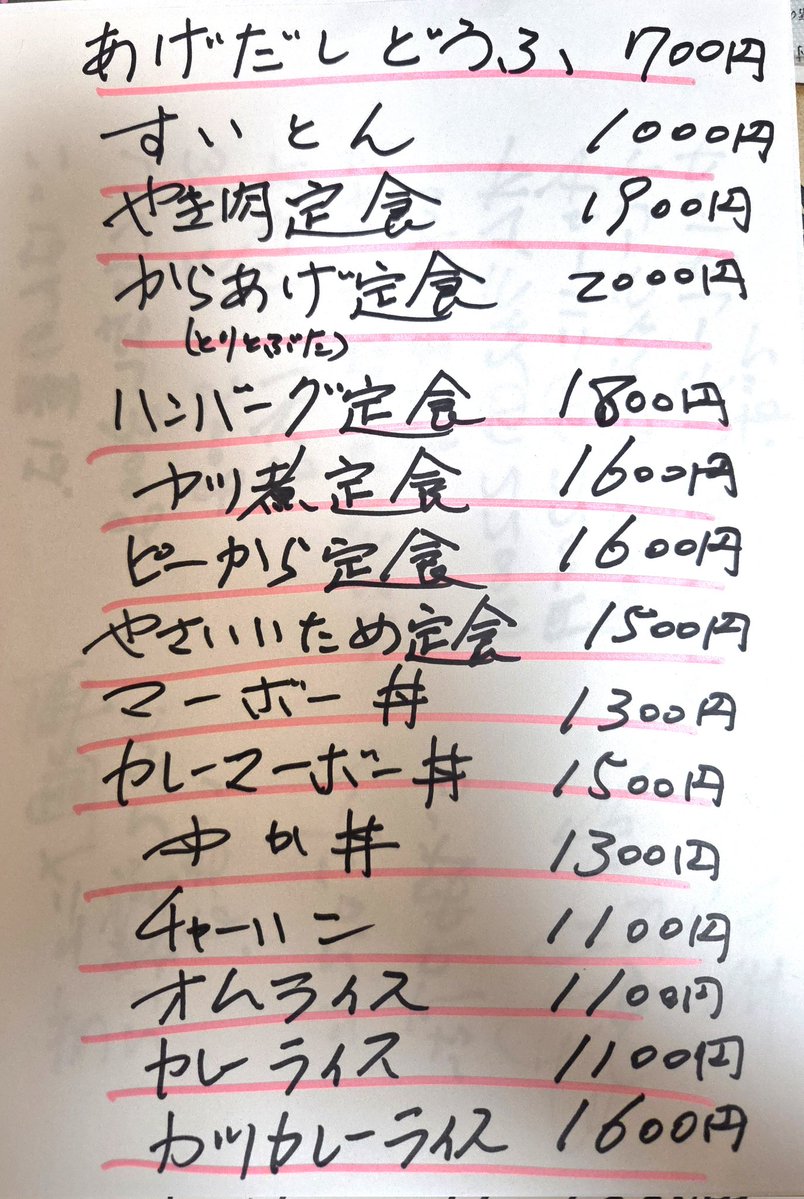 あげだしどうふ、 700円
すいとん 1000円
やき肉定食 1900円
からあげ定食 2000円
(とりとぶた)
ハンバーグ定食 1800円
カツ煮定食 1600円
ピーから定食 1600円
やさいいため定食 1500円
マーボー丼 1300円
カレーマーボー丼 1500円
中か丼 1300円
チャーハン 1100円
オムライス 1100円
カレーライス 1100円
カツカレーライス 1600円